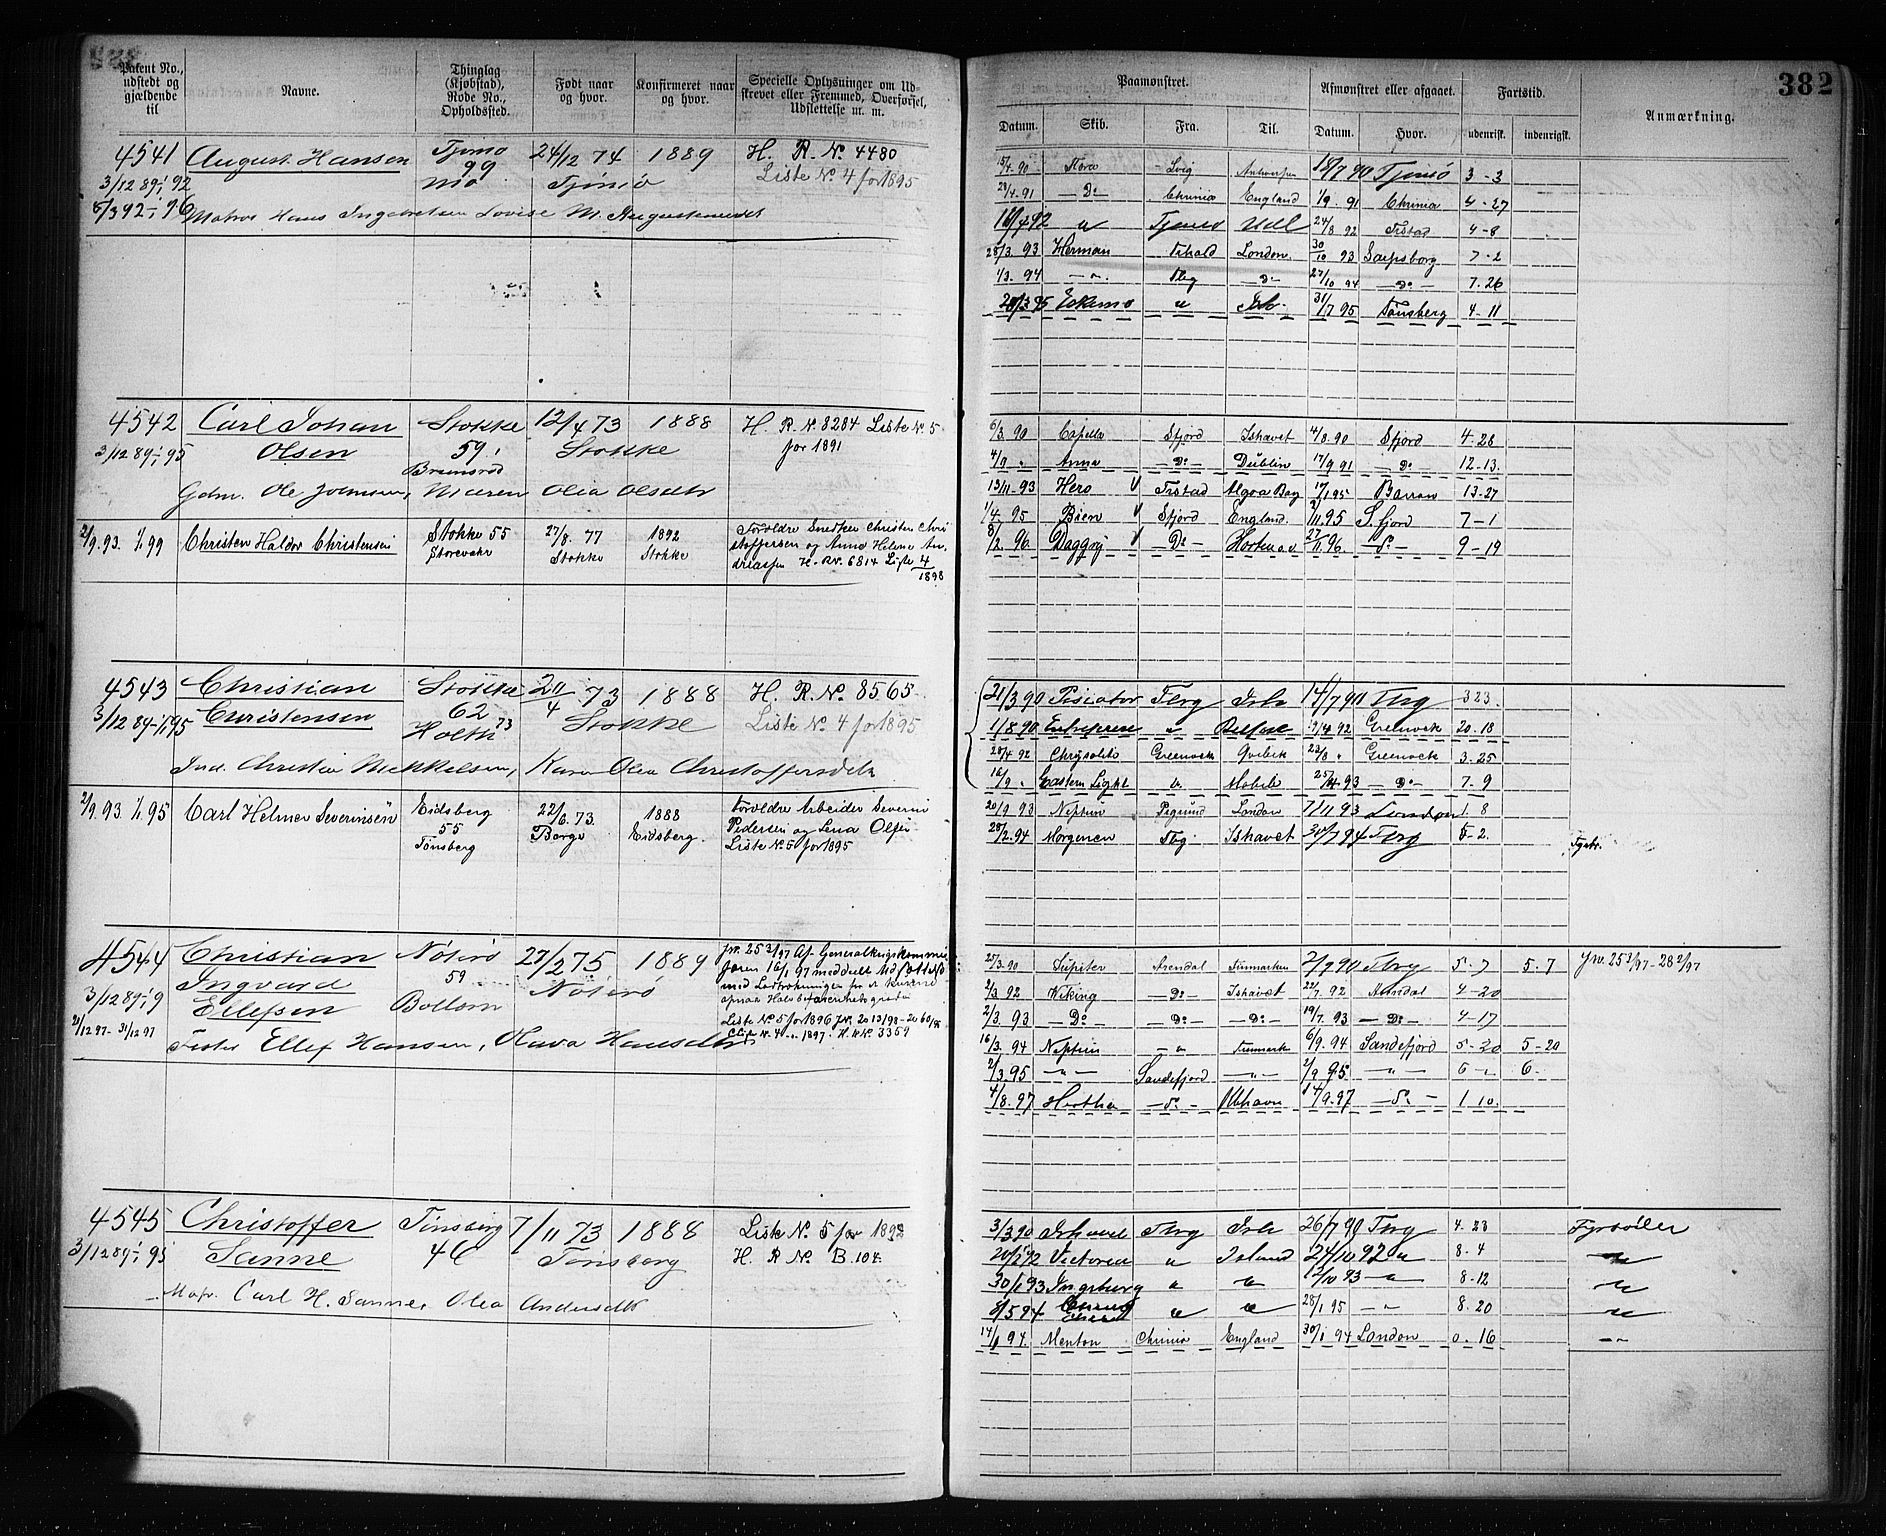 382
Patent No., udstedt og gjældende til
Navne.
Thinglag (Kjøbstad), Rode No., Opholdssted.
Født naar og hvor.
Konfirmeret naar og hvor.
Specielle Oplysninger om Udskrevet eller Fremmed, Overførsel, Udslettelse m. m.
Paamønstret.
Afmønstret eller afgaaet.
Fartstid.
Anmærkning.
Datum. Skib. Fra. Til. Datum. Hvor. udenrigsk. indenrigsk.
4541 August Hansen Tjømø 24/12 74 1889 H. R. No. 4480
3/12 89-1/1 92 99 Mo Tjømø Liste No. 4 for 1895
Matros Hans Ingebretsen Lovise M. Augustinusdt
15/4 90 Flora Lvig Antwerpen 18/7 90 Tjømø 3-3
28/4 91 — Do Chrinia England 1/9 91 Chrinia 4-27
16/4 92 " Tjømø Udl 24/8 92 Frstad 4-8
28/3 93 Herman Frhald London 30/10 93 Sarpsborg 7-2
1/3 94 — " — Tbg — Do — 27/10 94 — Do — 7-26
20/3 95 Eskimo " Ish. 31/7 95 Tønsberg 4-11
4542 Carl Johan Olsen Stokke 12/4 73 1888 H. R. N. 8284 Liste No. 5
3/12 89-1/1 95 59 Stokke for 1891
Gdm. Ole Johnsen, Maren Olea Olsdtr
2/9 93. 1/1 99 Christen Haldor Christensen Stokke 55 27/8 77 1892 Forældre Snedker Christen Christoffersen og Anne Helene Andreassen H. R. No. 6814 Liste 4/1898
Storevahr Stokke Stokke
6/3 90 Capella Sfjord Ishavet 4/8 90 Sfjord 4-28
4/9 " Anna — Do — Dublin 17/9 91 — Do — 12-13
13/11 93 Hero V Frstad Algoa Bay 17/1 95 Barrow 13-27
1/4 95 Bien V Sfjord England. 2/11 95 S.fjord 7-1
8/2 96 Daggry V — Do — Horten o.v. 27/11 96. — Do — 9-19
4543 Christian Christensen Stokke 20/4 73 1888 H. R. No. 8565
3/12 89-1/1 95 62 Stokke Liste No. 4 for 1895
Ind. Christen Mikkelsen, Karen Olea Christoffersdtr
2/9 93 1/1 95 Carl Helmer Severinsen Eidsberg 22/6 73 1888 Forældre Arbeider Severin Pedersen og Lena Olsen
55 Tønsberg Borge Eidsberg. Liste No. 5 for 1895
21/3 90 Piscator Tbrg Ish 14/7 90 Tbrg 3 23
1/8 90 Enterprise " Belfast 9/4 92 Greenock 20-18
28/4 92 Chrysolite Greenock Qvebek 22/8 " Greenock 3-25
16/9 " Eastern Light " Mobile 25/4 93 — Do — 7-9
20/9 93 Neptun Pegrund London 7/11 93 London 1-8
28/2 94 Morgenen Tbg Ishavet 30/7 94 Tbrg 5-2 Fyrb.
4544 Christian Ingvard Ellefsen Nøtterø 27/2 75 1889
3/12 89-1/1 9 59 Nøterø
21/12 97-31/12 97
Liste No. 5 for 1896
Ellef Hansen, Olava Hansdtr
27/3 90 Jupiter Arendal Finmarken 2/9 90 Tbrg 5-7 5-7 Jn. 253/97-28 2/97
2/3 92 Viking — Do — Ishavet 22/7 92 Arendal 4-20
2/3 93 — Do — — Do — — Do — 19/7 93 — Do — 4-17
16/3 94 Neptun — " — Finmark 6/9 94 Sandefjord 5-20 5-20
2/3 95 — " — Sandefjord — " — 2/9 95 — " — 6 - 6-
4/8 97 Hertha — Do — 14/9 97 — Do — 1 10.
4545 Christoffer Sanne Tønsberg 7/11 73 1888 Liste No. 5 for 1892
3/12 89-1/1 95 Tønsberg H. R No. B. 104.
Carl H. Sanne, Olea Andersdtr
3/3 90 Ishavet Tbrg Ish 26/7 90 Tbrg 4-23 Fyrbøder
20/2 92 Victoria " Island 24/10 92 " 8-4 "
30/1 93 Ingeburg " " 12/10 93 — " — 8-12 "
8/5 94 " " 28/1 95 — " — 8-20 "
14/1 94 Menton Chrinia England 30/1 94 London 0-16 — " —